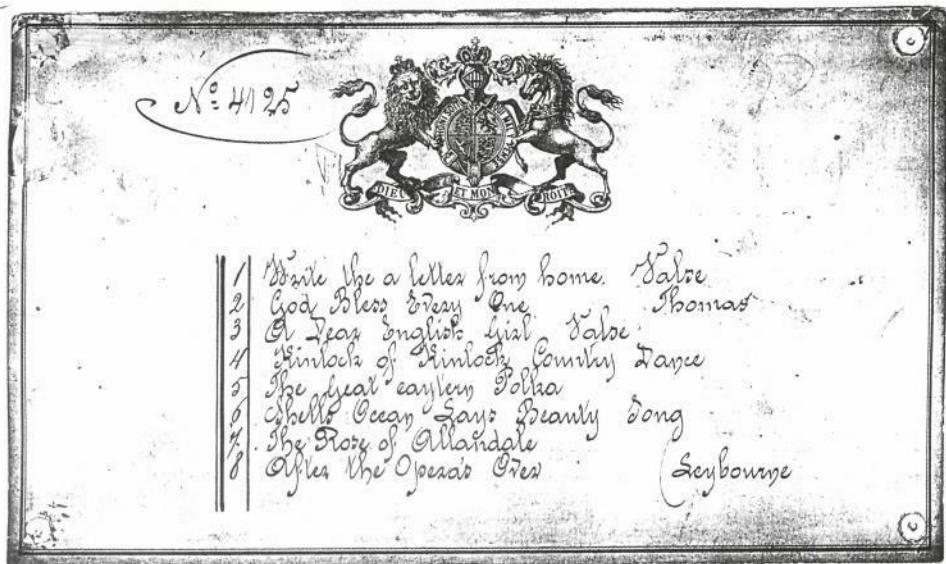 Nº 4125
HONI SOIT QUI MAL Y PENSE
DIEU ET MON DROIT
1 Write the a letter from home. Valse
2 God Bless Every One Thomas
3 A Dear English Girl Valse
4 Kinlock of Kinlock Country Dance
5 The Great eastern Polka
6 Shells Ocean Lays Beauty Song
7. The Rose of Allandale
8 After the Opera's Over (Leybourne